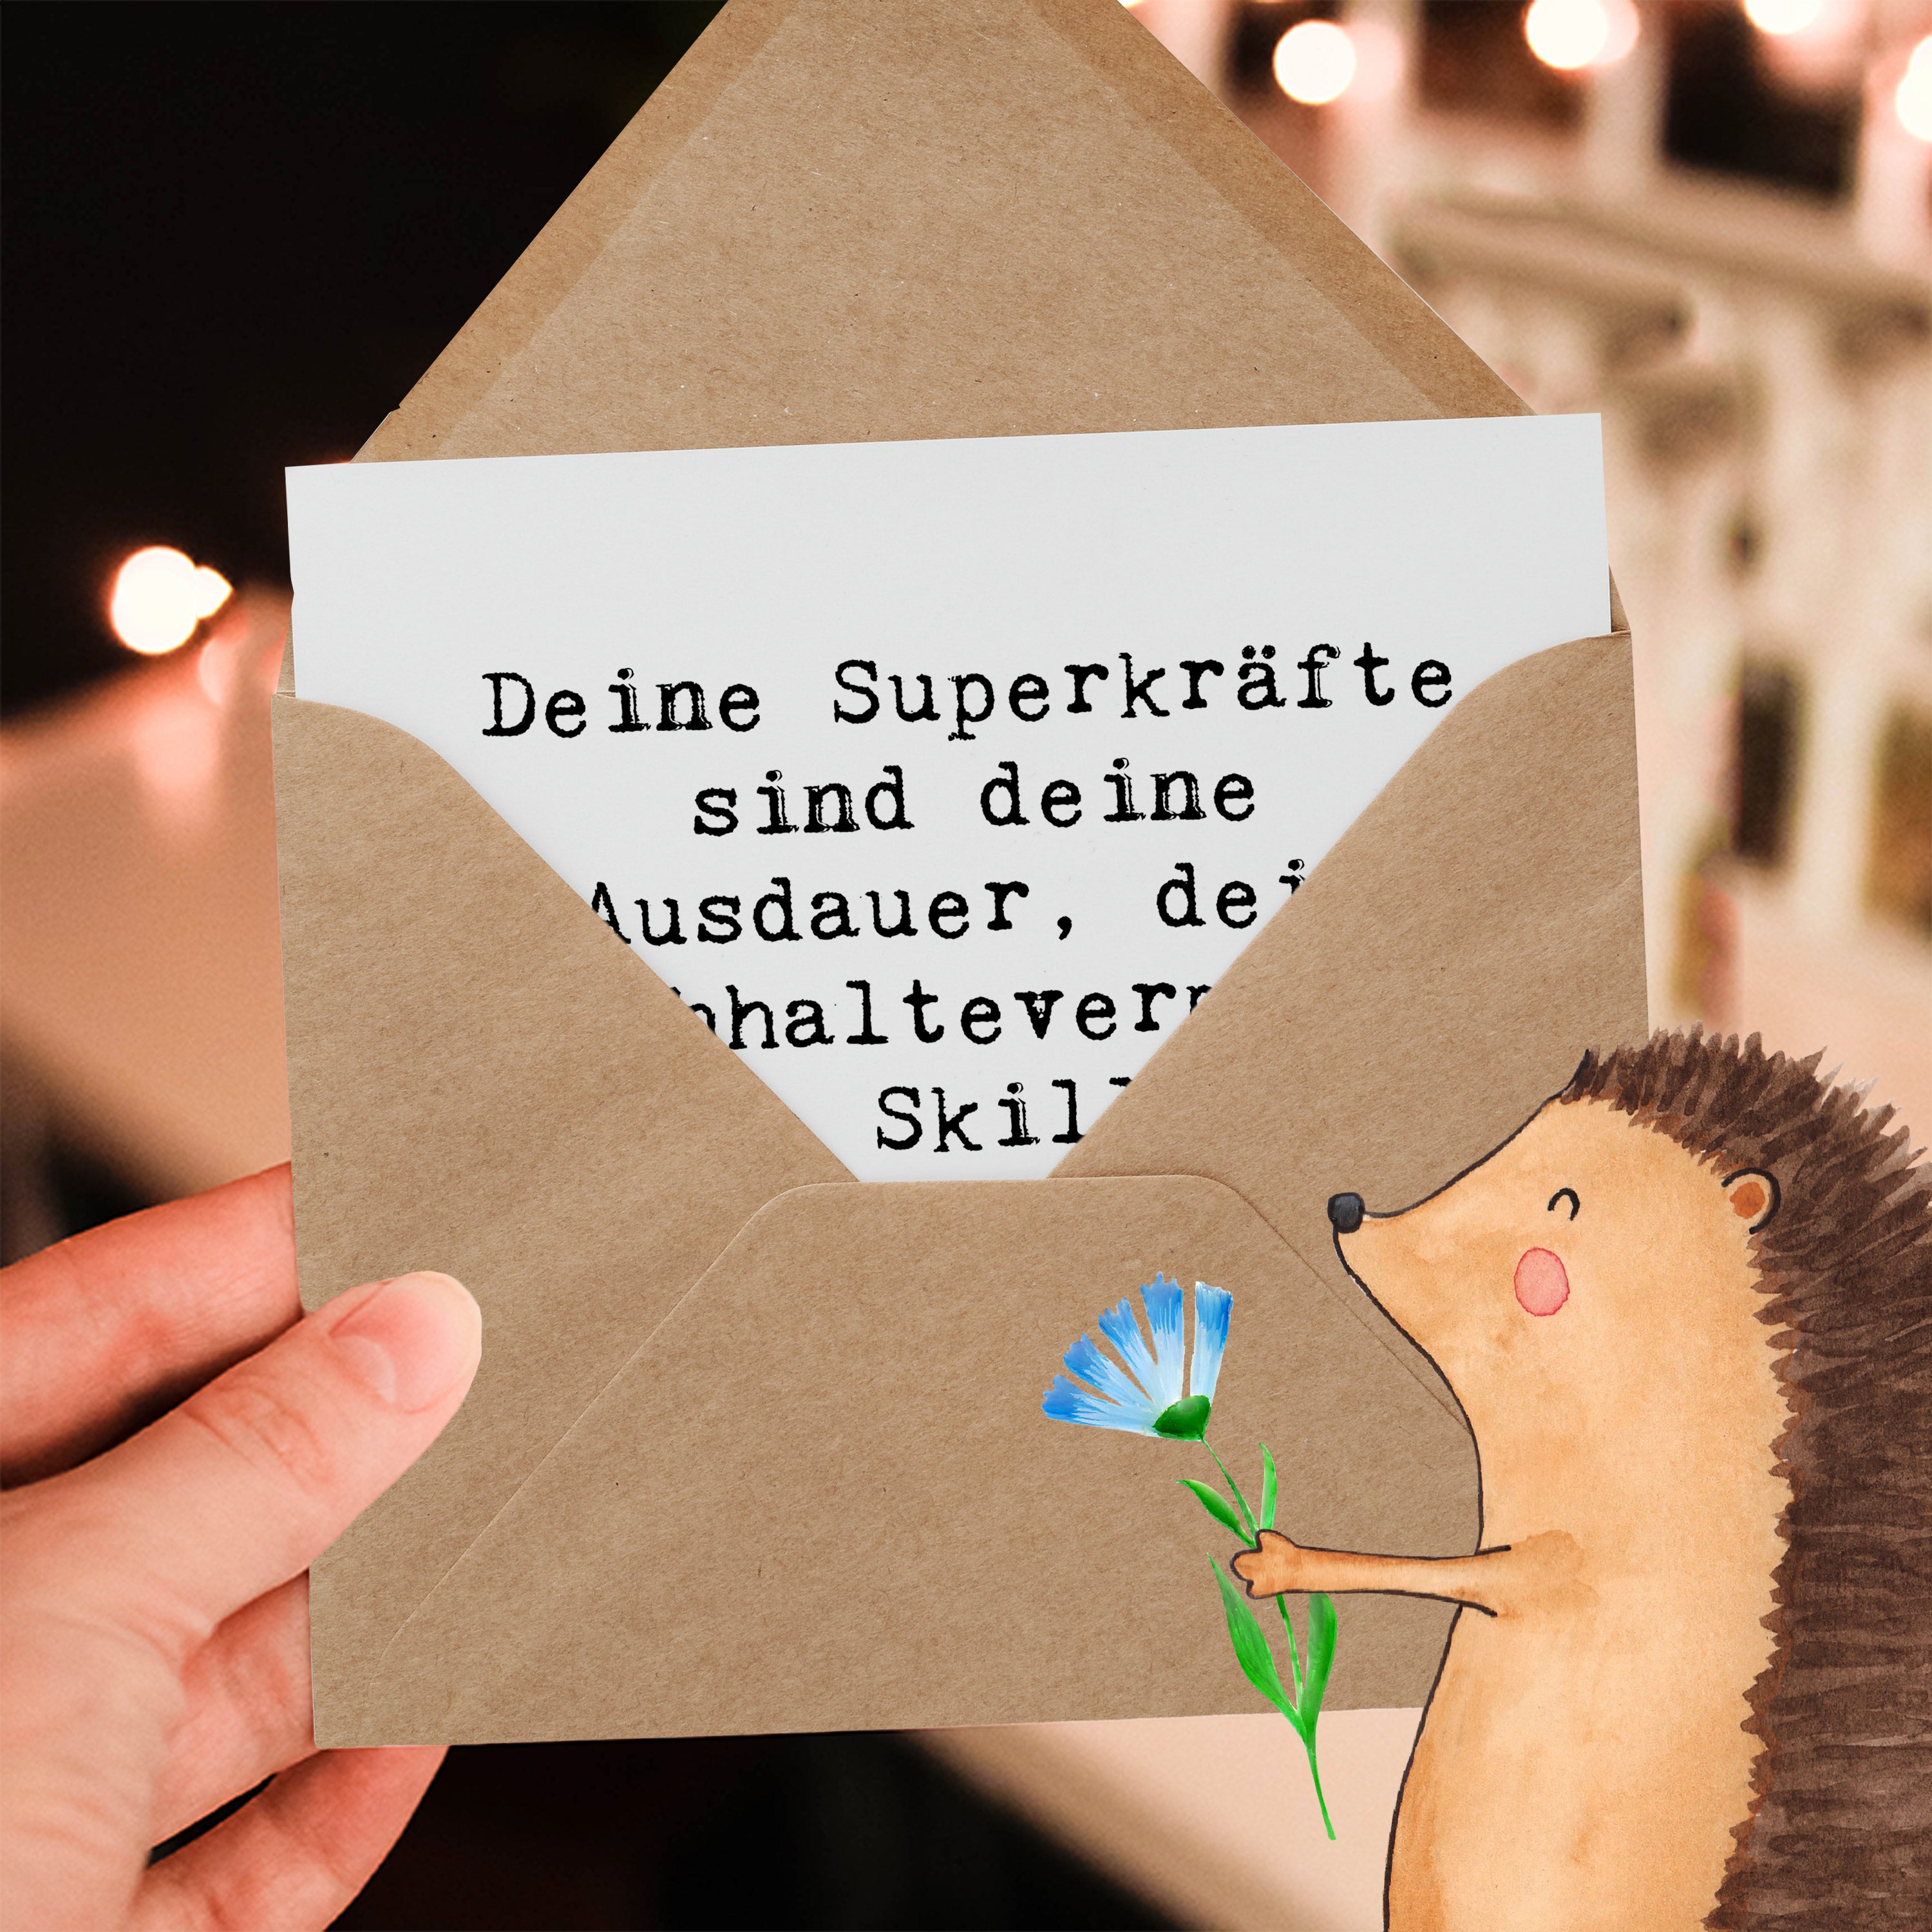 Deine Superkräfte
sind deine
Ausdauer, dei
haltever
Skil